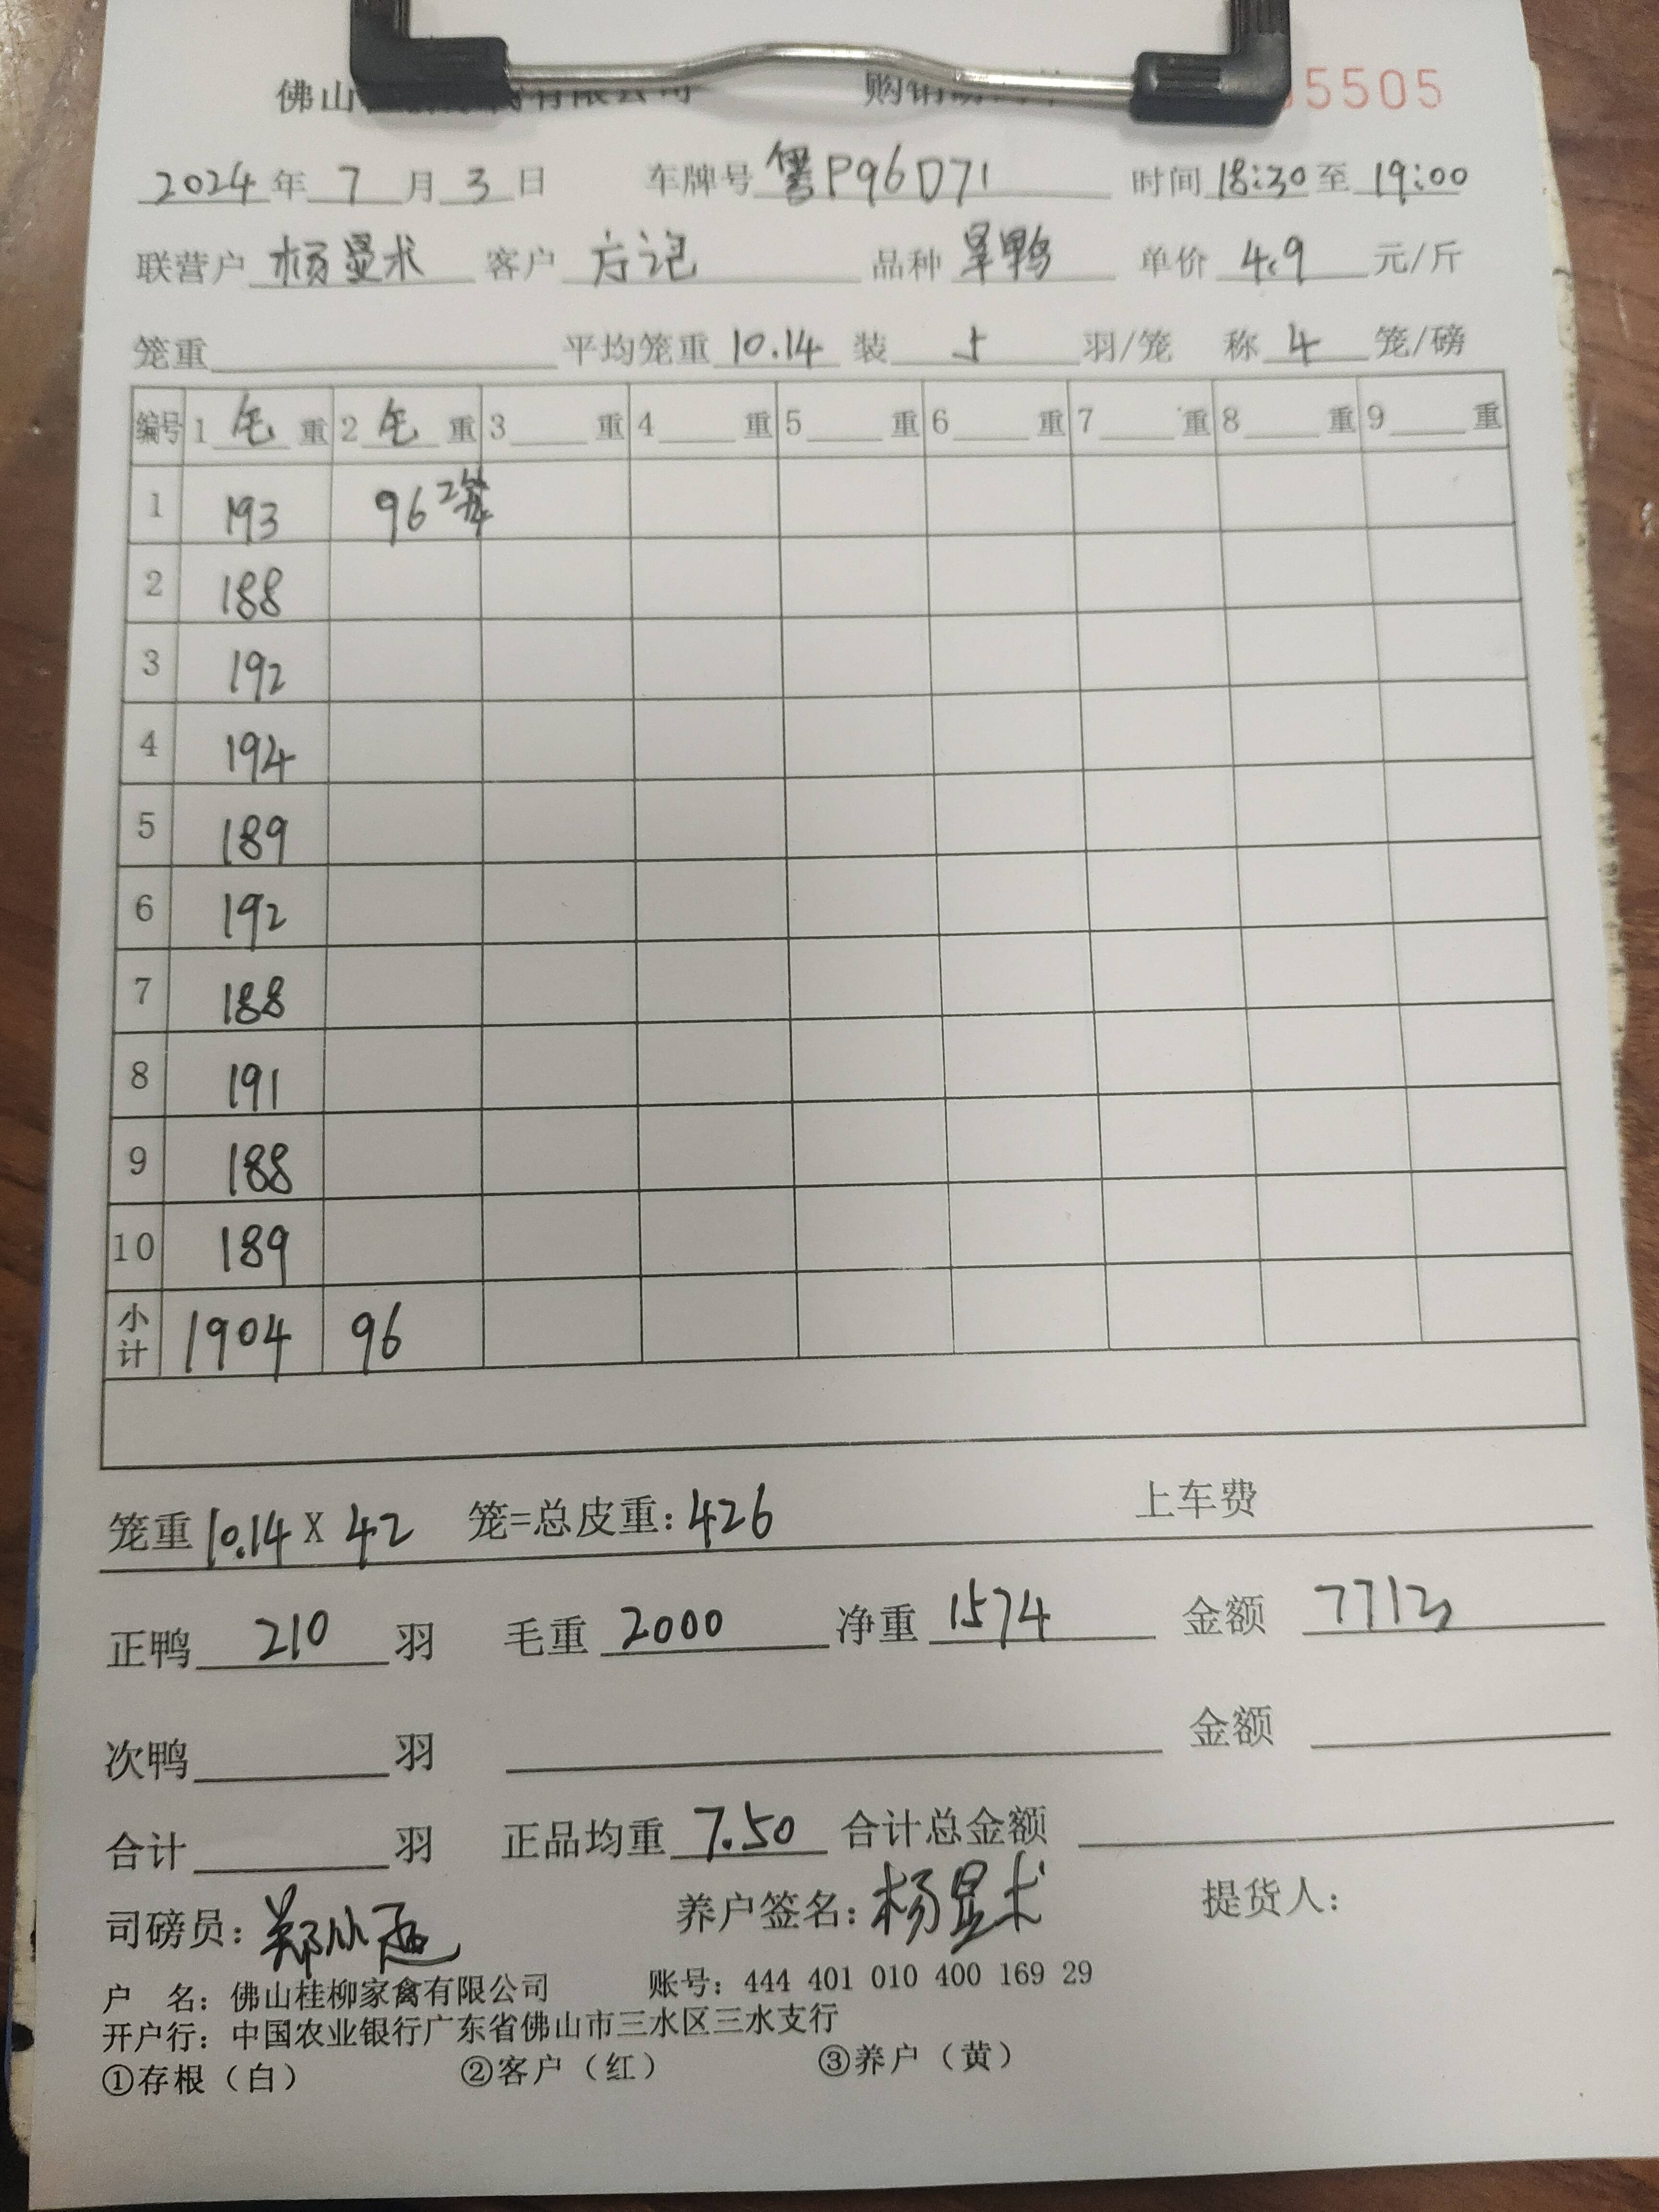 佛山 有限公司 购销 5505
2024年 7月3日 车牌号 粤P96D71 时间 18:30至 19:00
联营户 杨显术 客户 方记 品种 旱鸭 单价 4.9 元/斤
笼重 平均笼重 10.14 装 5 羽/笼 称 4 笼/磅
编号 1 毛 重 2 毛 重 3 重 4 重 5 重 6 重 7 重 8 重 9 重
1 193 96 2笼
2 188
3 192
4 194
5 189
6 192
7 188
8 191
9 188
10 189
小计 1904 96
笼重 10.14 X 42 笼=总皮重: 426 上车费
正鸭 210 羽 毛重 2000 净重 1574 金额 7713
次鸭 羽 金额
合计 羽 正品均重 7.50 合计总金额
司磅员: 郑 养户签名: 杨显术 提货人:
户 名: 佛山桂柳家禽有限公司 账号: 444 401 010 400 169 29
开户行: 中国农业银行广东省佛山市三水区三水支行
①存根（白） ②客户（红） ③养户（黄）